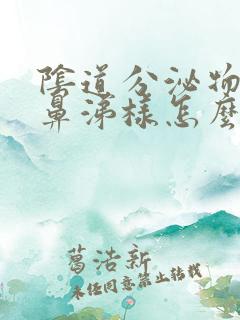 陰道分泌物
鼻涕樣怎麼
葛浩新
未經同意禁止轉載